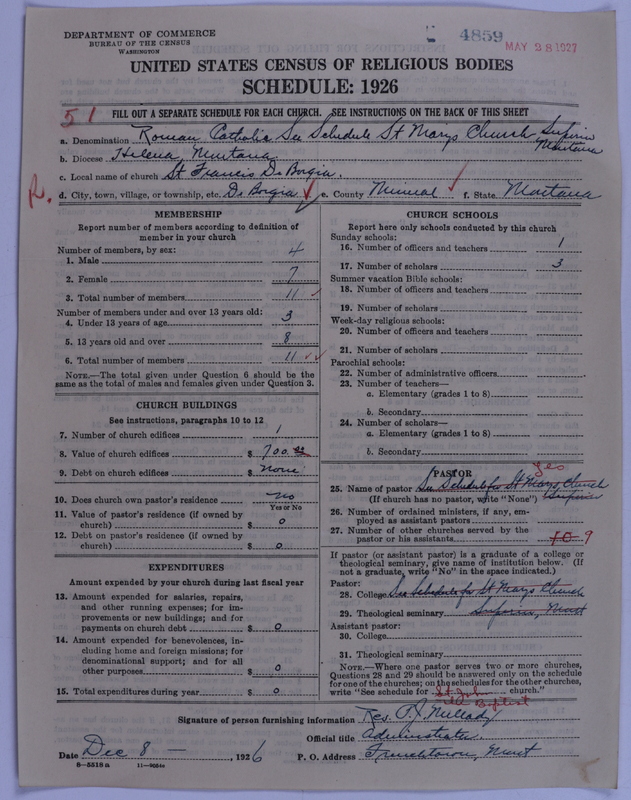 DEPARTMENT OF COMMERCE
BUREAU OF THE CENSUS
WASHINGTON
4859
MAY 28 1927
UNITED STATES CENSUS OF RELIGIOUS BODIES
SCHEDULE: 1926
51
FILL OUT A SEPARATE SCHEDULE FOR EACH CHURCH. SEE INSTRUCTIONS ON THE BACK OF THIS SHEET
a. Denomination Roman Catholic See Schedule St Marys Church Superior Montana
b. Diocese Helena, Montana
c. Local name of church St Francis De Borgia.
R. d. City, town, village, or township, etc. De Borgia e. County Mineral f. State Montana
MEMBERSHIP
Report number of members according to definition of
member in your church
Number of members, by sex:
1. Male 4
2. Female 7
3. Total number of members 11
Number of members under and over 13 years old:
4. Under 13 years of age 3
5. 13 years old and over 8
6. Total number of members 11
NOTE.—The total given under Question 6 should be
same as the total of males and females given under Question 3.
CHURCH BUILDINGS
See instructions, paragraphs 10 to 12
7. Number of church edifices 1
8. Value of church edifices $ 700.00
9. Debt on church edifices $ None
10. Does church own pastor's residence No
Yes or No
11. Value of pastor's residence (if owned by
church) $ 0
12. Debt on pastor's residence (if owned by
church) $ 0
EXPENDITURES
Amount expended by your church during last fiscal year
13. Amount expended for salaries, repairs,
and other running expenses; for im-
provements or new buildings; and for
payments on church debt $ 0
14. Amount expended for benevolences, in-
cluding home and foreign missions; for
denominational support; and for all
other purposes $ 0
15. Total expenditures during year $ 0
CHURCH SCHOOLS
Report here only schools conducted by this church
Sunday schools:
16. Number of officers and teachers 1
17. Number of scholars 3
Summer vacation Bible schools:
18. Number of officers and teachers
19. Number of scholars
Week-day religious schools:
20. Number of officers and teachers
21. Number of scholars
Parochial schools:
22. Number of administrative officers
23. Number of teachers—
a. Elementary (grades 1 to 8)
b. Secondary
24. Number of scholars—
a. Elementary (grades 1 to 8)
b. Secondary
PASTOR
Yes
25. Name of pastor See Schedule for St Marys Church
(If church has no pastor, write "None") Superior
26. Number of ordained ministers, if any, em-
ployed as assistant pastors
27. Number of other churches served by the
pastor or his assistants 10 9
If pastor (or assistant pastor) is a graduate of a college or
theological seminary, give name of institution below. (If
not a graduate, write "No" in the space indicated.)
Pastor:
28. College See Schedule for St Marys Church
29. Theological seminary Superior, Mont
Assistant pastor:
30. College
31. Theological seminary
NOTE.—Where one pastor serves two or more churches,
Questions 28 and 29 should be answered only on the schedule
for one of the churches; on the schedules for the other churches,
write "See schedule for St John church."
the Baptist
Signature of person furnishing information Rev. P. J. Mellady
Official title Administrator.
Date Dec 8 — , 1926 P. O. Address Frenchtown, Mont
8—5518 a